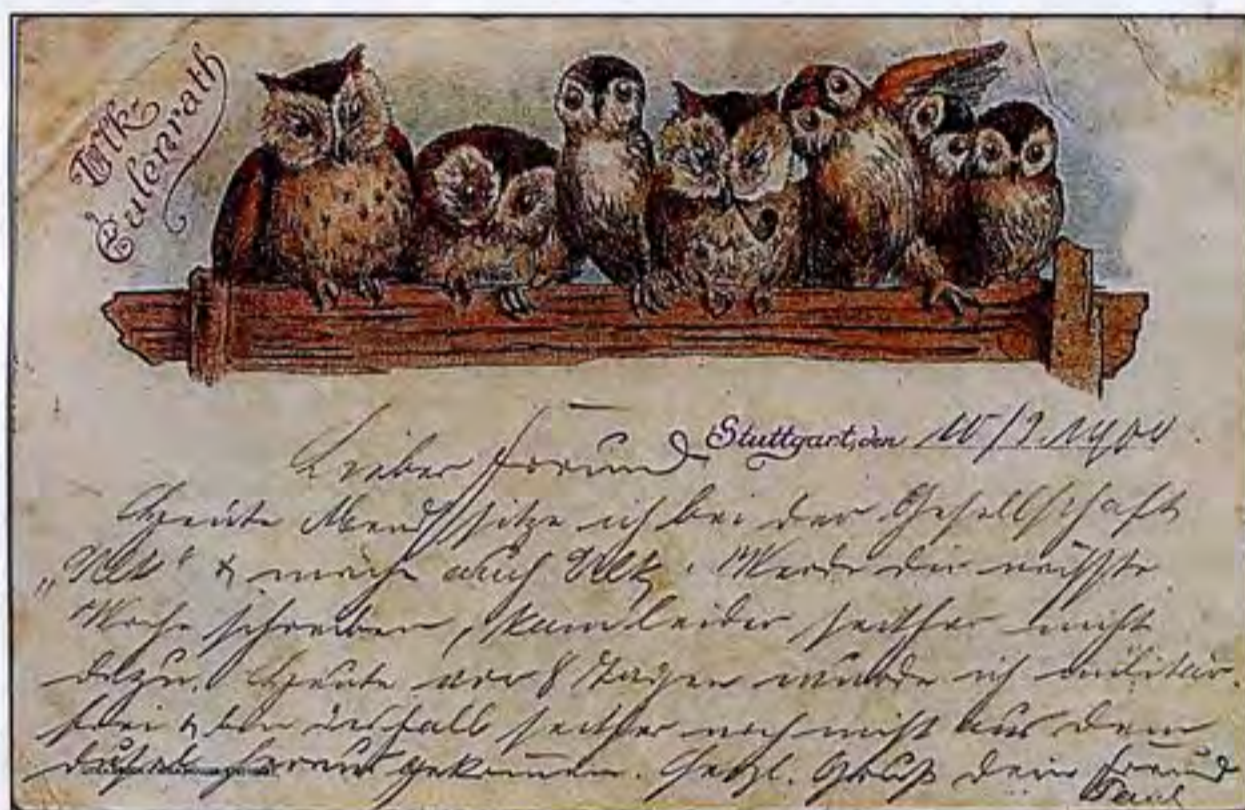 Ulk-
Eulenrath
Stuttgart, den
Lieber Freund
Heute Abend sitze ich bei der Gesellschaft
„Ulk“ & mache auch Ulk. Werde dir nächste
Woche schreiben, kam leider seither nicht
dazu. Heute vor 8 Tagen wurde ich militär-
frei & bin deshalb seither noch nicht aus dem
gekommen. Herzl. Gruß dein Freund
Paul